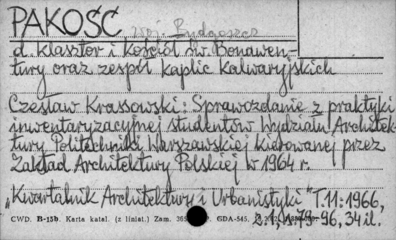 PAKOŚĆ woj. Bydgoszcz
d. klasztor i kościół św. Bonawen-
tury oraz zespół kaplic kalwaryjskich
Czesław Krassowski: Sprawozdanie z praktyki
inwentaryzacyjnej studentów Wydziału Architek-
tury Politechniki Warszawskiej kierowanej przez
Zakład Architektury Polskiej w 1964 r.
„Kwartalnik Architektury i Urbanistyki" T.11:1966,
z.1, s.79-96, 34 il.
CWD. B-15b. Karta katal. (z liniat.) Zam. GDA-545.